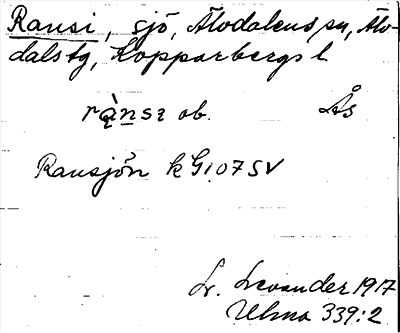 Ransi, sjö, Älvdalens sn, Älv-
dals tg, Kopparbergs l.
rànsı ob. Ås
Ransjön k G107SV
L. Levander 1917
Ulma 339:2